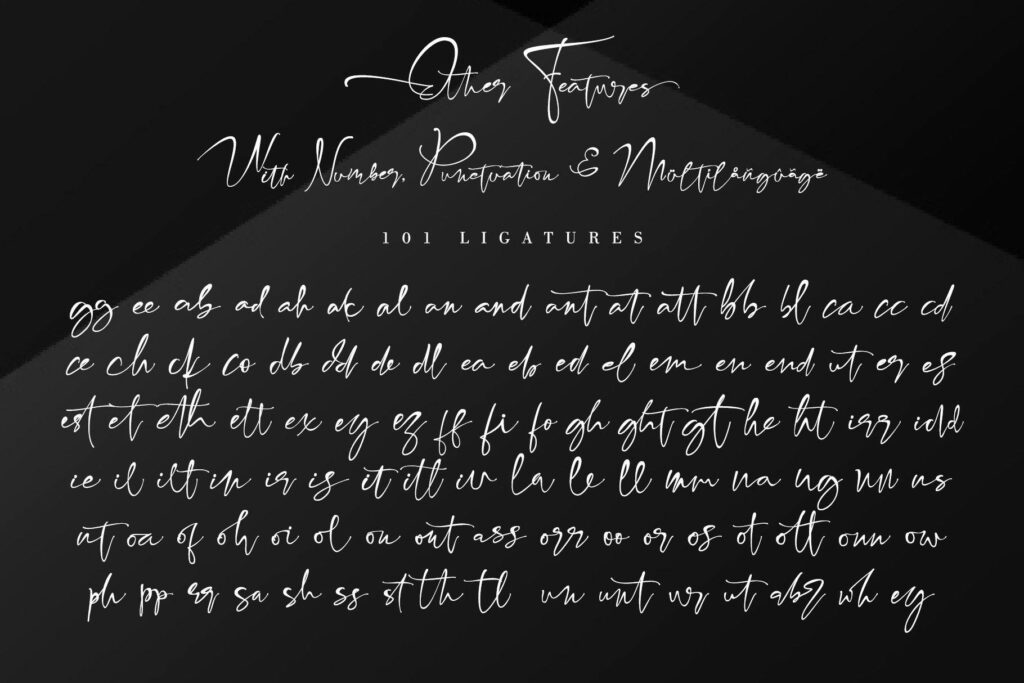 Other Features
With Number, Punctuation & Mültilåñgüägë
101 LIGATURES
gg ee ab ad ah ak al an and ant at att bb bl ca cc cd
ce ch ck co db dd de dl ea eb ed el em en end ut er es
est et eth ett ex ey ez ff fi fo gh ght gt he ht irr idd
ie il ilt in ir is it itt iv la le ll mm na ng nn ns
nt oa of oh oi ol on ont ass orr oo or os ot ott onn ow
ph pp rr sa sh ss st th tl un unt ur ut abz wh ey